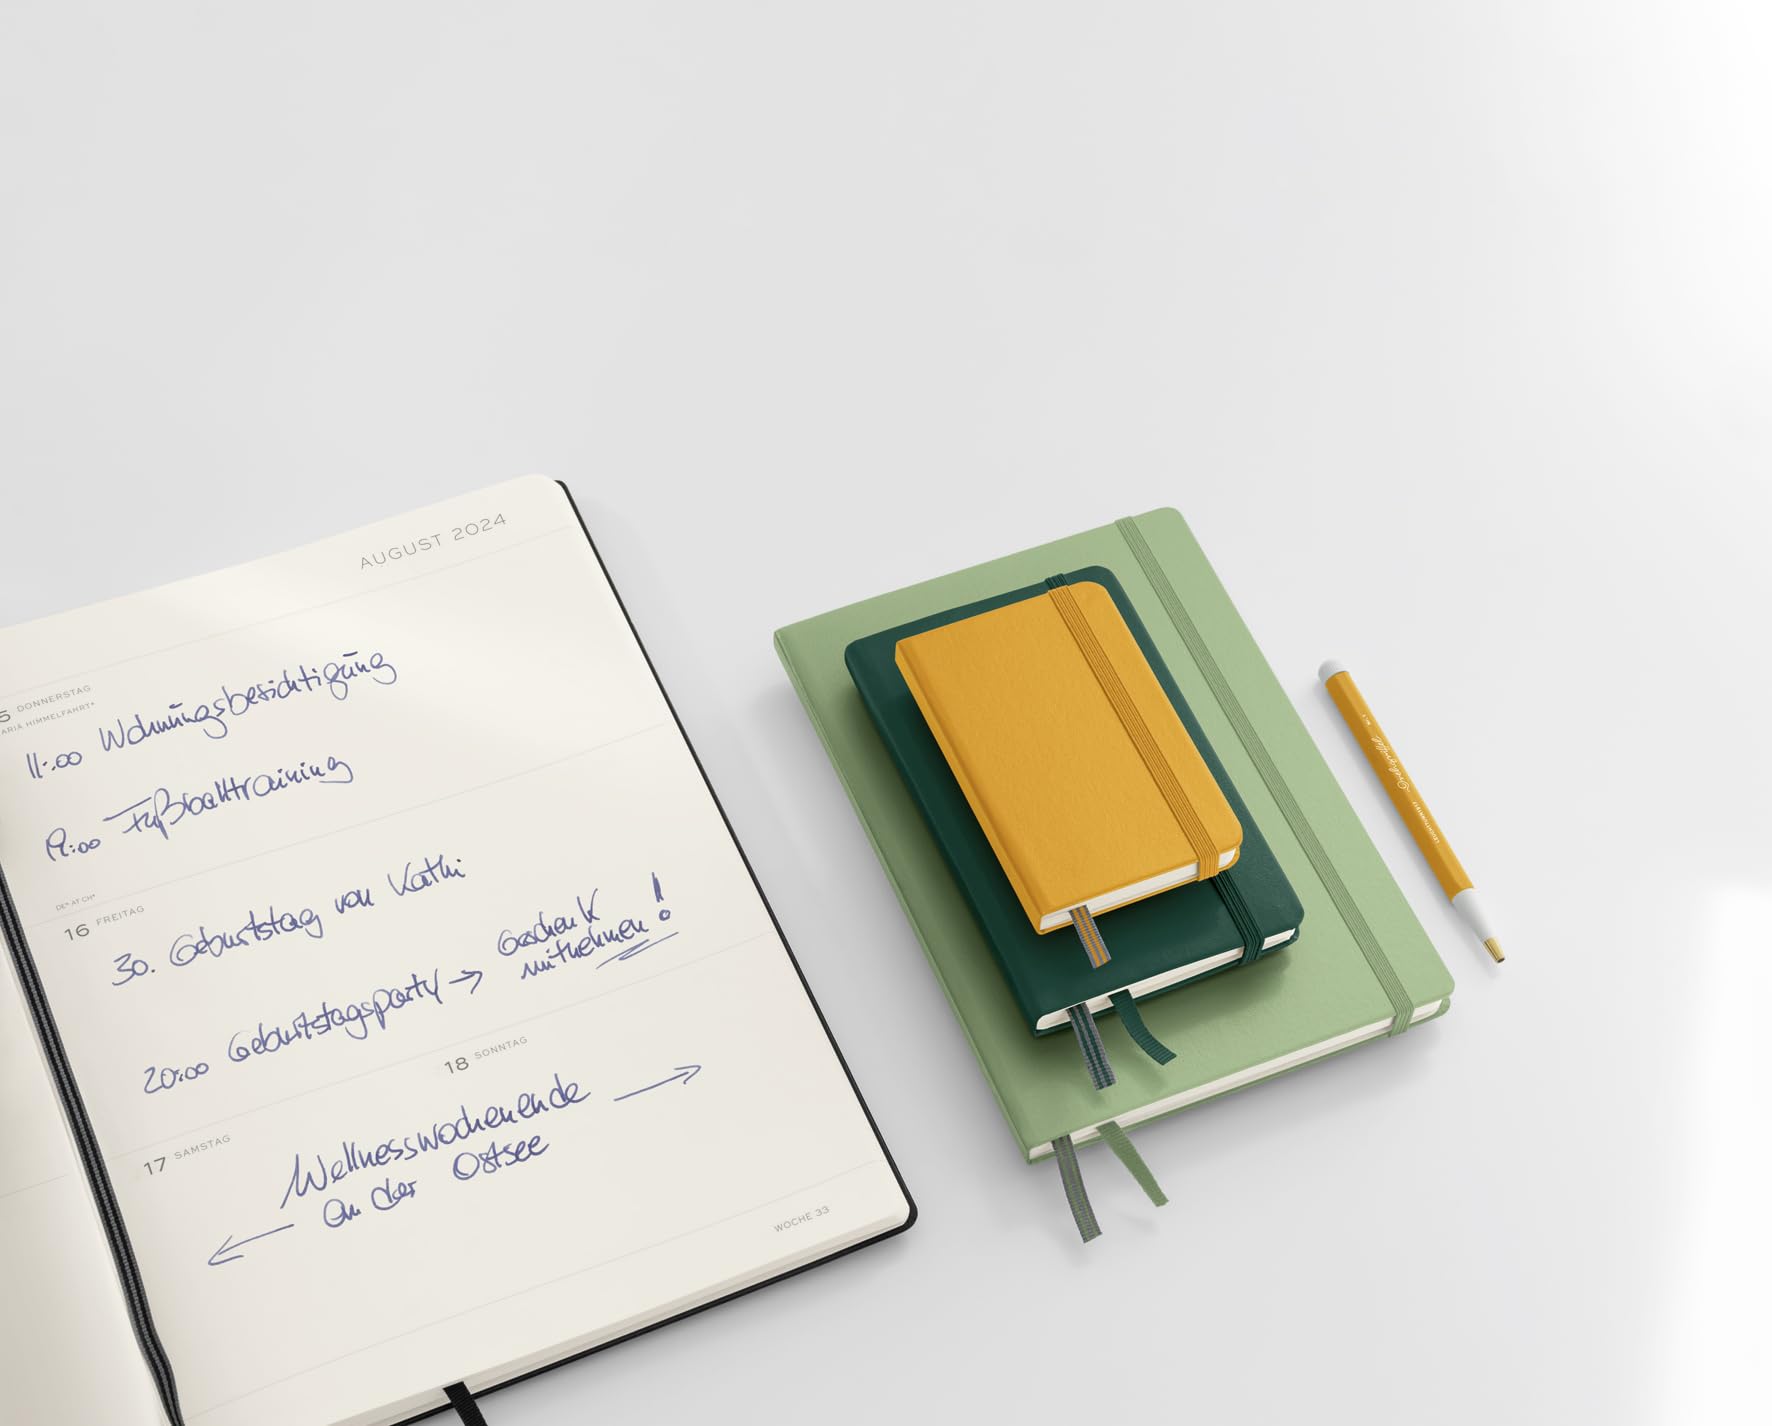 AUGUST 2024
5 DONNERSTAG
ARIA HIMMELFAHRT*
11:00 Wohnungsbesichtigung
19:00 Fußballtraining
DE* AT CH*
16 FREITAG
30. Geburtstag von Kathi
20:00 Geburtstagsparty → Geschenk
mitnehmen!
17 SAMSTAG
18 SONNTAG
Wellnesswochenende →
← an der Ostsee
WOCHE 33
Drehgriffel
LEUCHTTURM1917